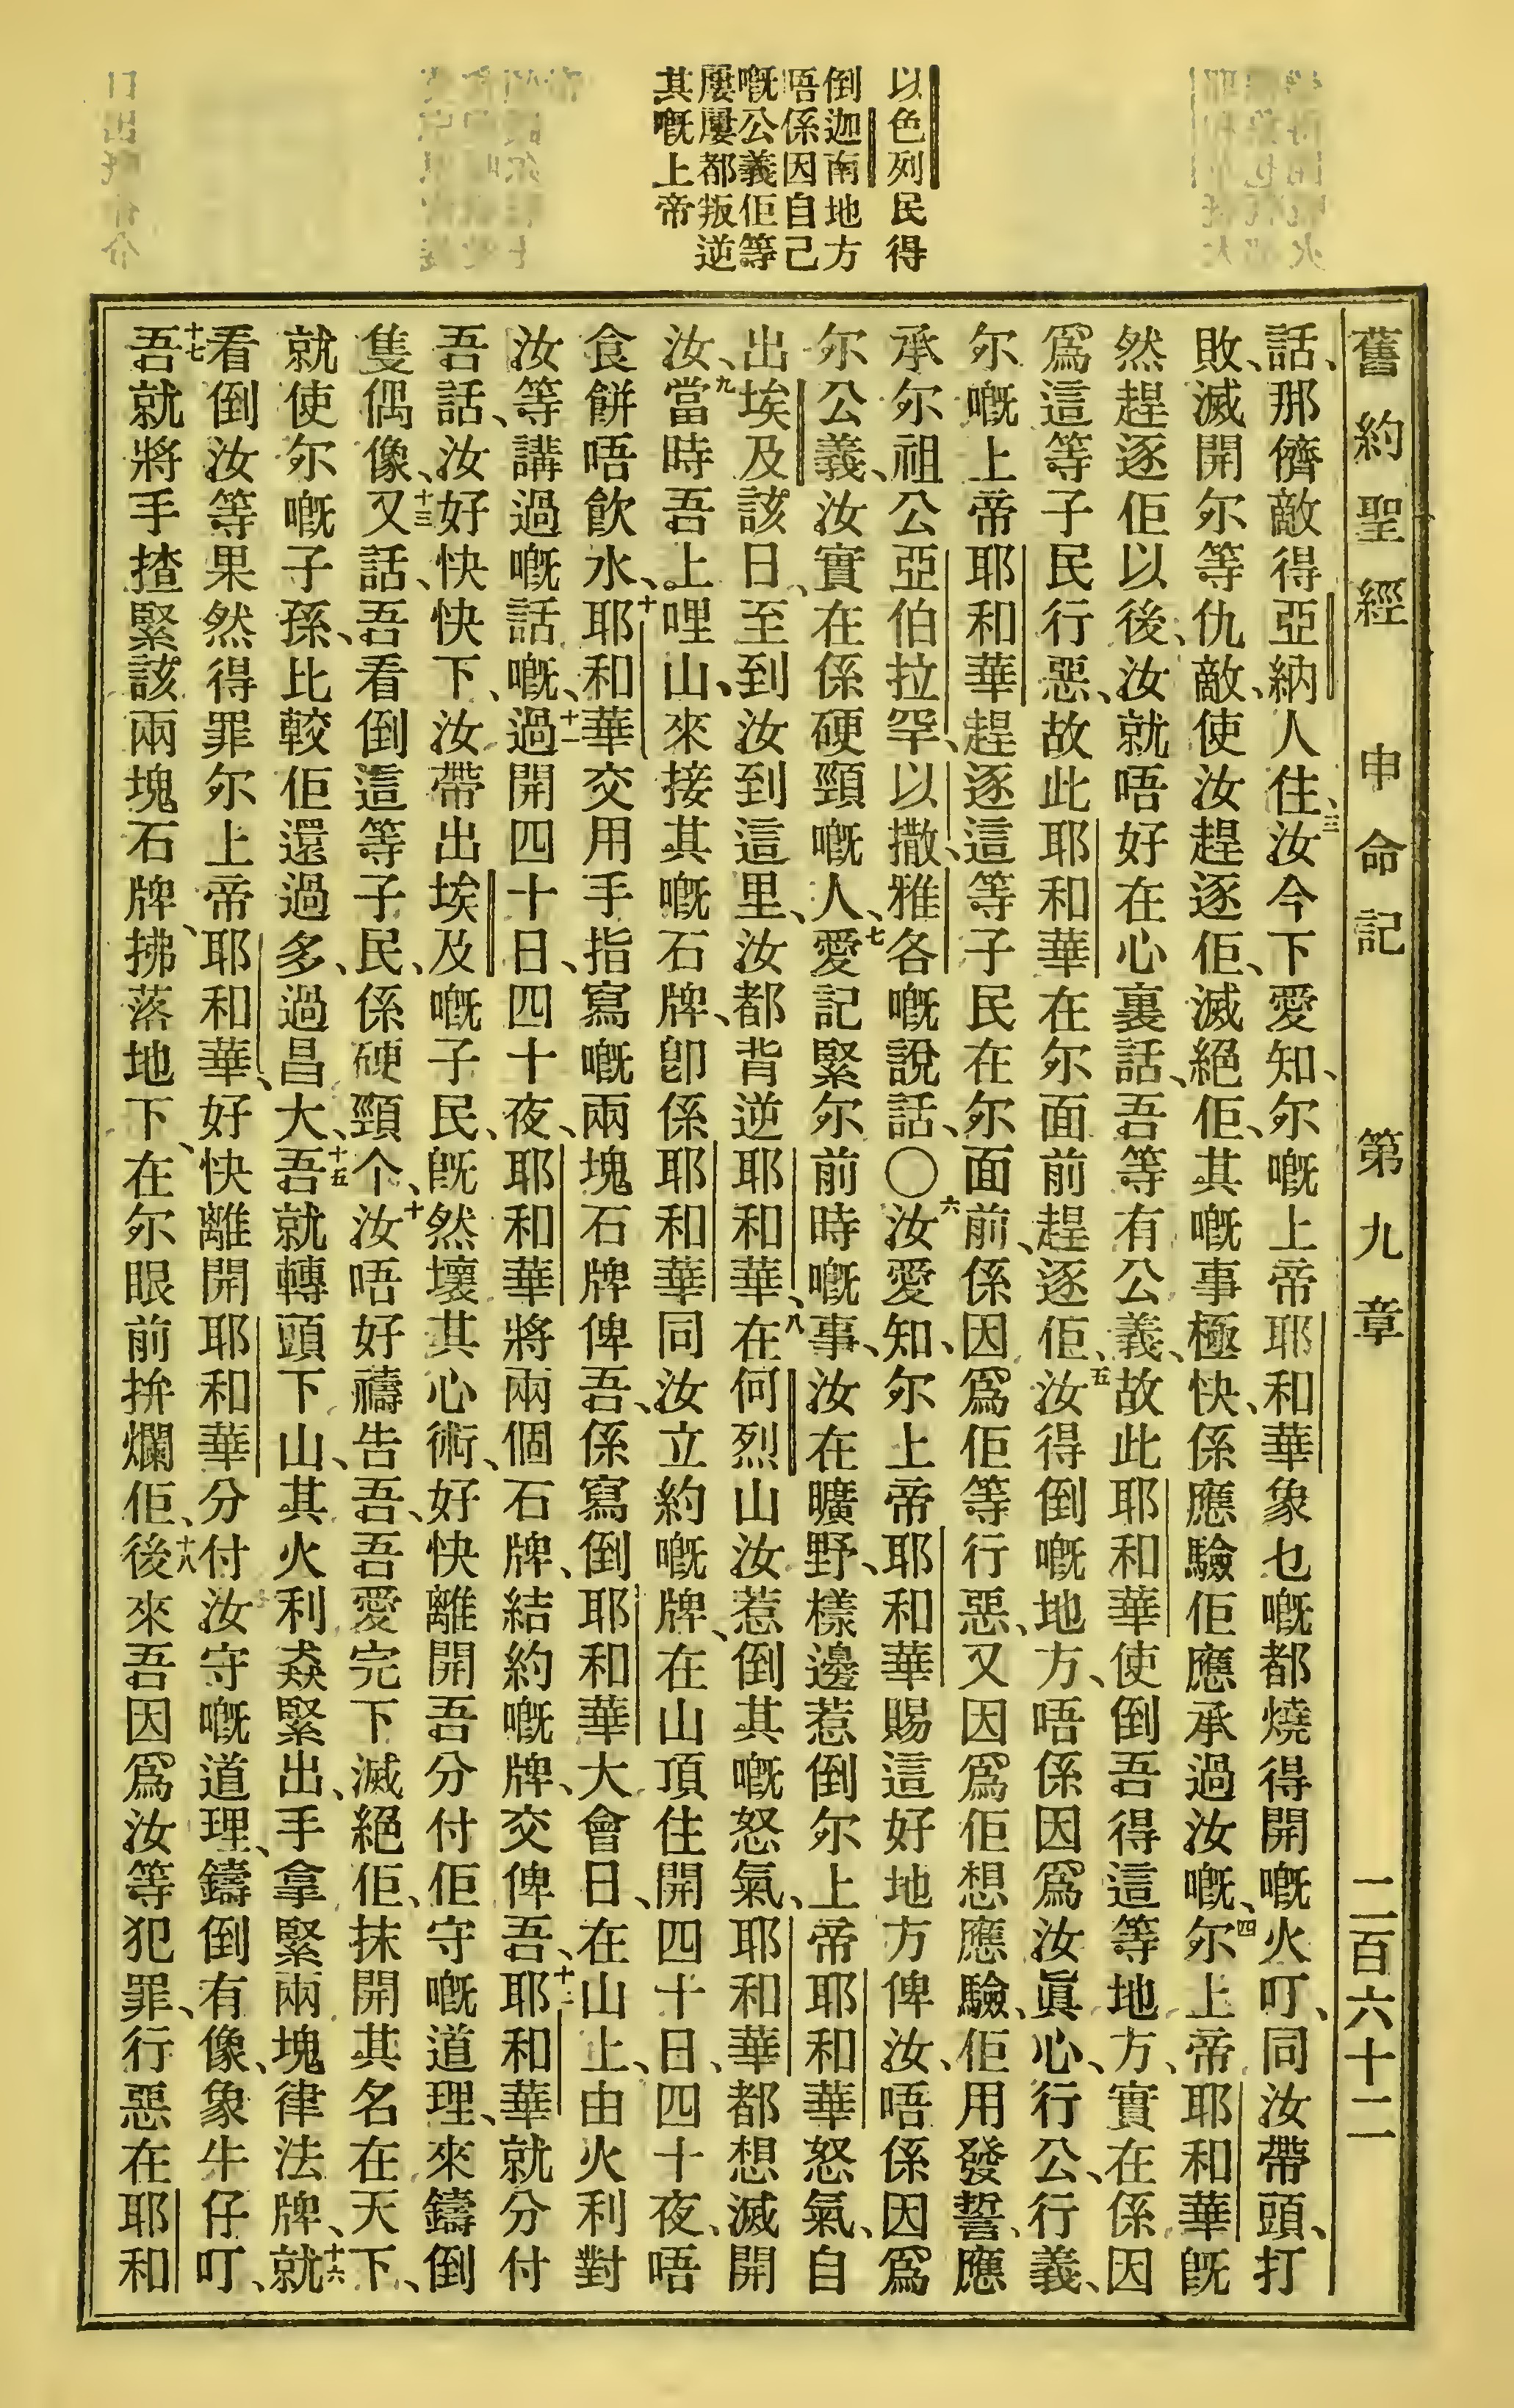 以色列民得
倒迦南地方
唔係因自己
嘅公義佢等
屢屢都叛逆
其嘅上帝
舊約聖經 申命記 第九章 二百六十二
話、那儕敵得亞納人住、三汝今下愛知、尔嘅上帝耶和華象乜嘅都燒得開嘅火叮、同汝帶頭、打
敗、滅開尔等仇敵、使汝趕逐佢、滅絕佢、其嘅事極快、係應驗佢應承過汝嘅、四尔上帝耶和華旣
然趕逐佢以後、汝就唔好在心裏話、吾等有公義、故此耶和華使倒吾得這等地方、實在係因
爲這等子民行惡、故此耶和華在尔面前趕逐佢、五汝得倒嘅地方、唔係因爲汝眞心、行公、行義、
尔嘅上帝耶和華趕逐這等子民在尔面前、係因爲佢等行惡、又因爲佢想應驗、佢用發誓、應
承尔祖公亞伯拉罕、以撒、雅各嘅說話、〇六汝愛知、尔上帝耶和華賜這好地方俾汝、唔係因爲
尔公義、汝實在係硬頸嘅人、七愛記緊尔前時嘅事、汝在曠野、樣邊惹倒尔上帝耶和華怒氣、自
出埃及該日、至到汝到這里、汝都背逆耶和華、八在何烈山汝惹倒其嘅怒氣、耶和華都想滅開
汝、九當時吾上哩山、來接其嘅石牌、卽係耶和華同汝立約嘅牌、在山頂住開四十日、四十夜、唔
食餅唔飮水、十耶和華交用手指寫嘅兩塊石牌俾吾、係寫倒耶和華大會日、在山上、由火利對
汝等講過嘅話嘅、十一過開四十日、四十夜、耶和華將兩個石牌、結約嘅牌、交俾吾、十二耶和華就分付
吾話、汝好快快下、汝帶出埃及嘅子民、旣然壞其心術、好快離開吾分付佢守嘅道理、來鑄倒
隻偶像、十三又話、吾看倒這等子民、係硬頸个、十汝唔好禱告吾、吾愛完下滅絕佢、抹開其名在天下、
就使尔嘅子孫、比較佢還過多、過昌大、十五吾就轉頭下山、其火利猋緊出、手拿緊兩塊律法牌、十六就
看倒汝等果然得罪尔上帝耶和華、好快離開耶和華分付汝守嘅道理、鑄倒有像、象牛仔叮、
十七吾就將手揸緊該兩塊石牌、拂落地下、在尔眼前拚爛佢、十八後來吾因爲汝等犯罪、行惡在耶和